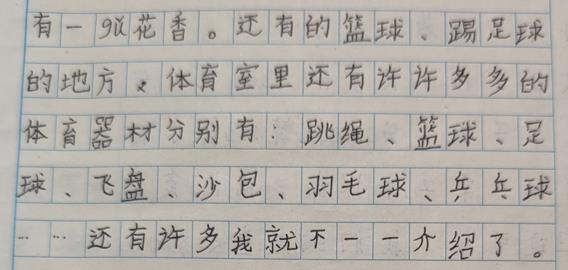 有一gǔ花香。还有的篮球、踢足球
的地方。体育室里还有许许多多的
体育器材分别有：跳绳、篮球、足
球、飞盘、沙包、羽毛球、乒乓球
……还有许多我就不一一介绍了。